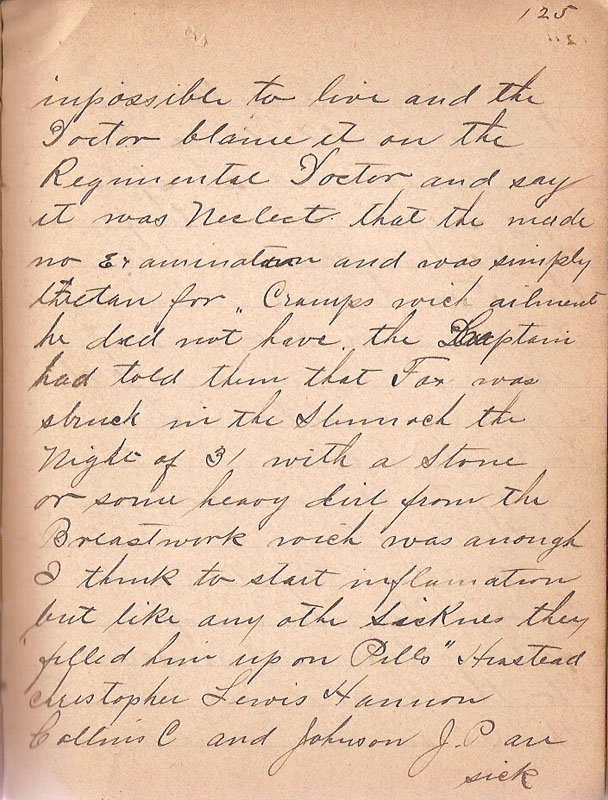 125
impossible to live and the
Doctor blame it on the
Regimental Doctor and say
it was Neclect. that the made
no Examination and was simply
for „ Cramps wich ailment
he did not have. the Captain
had told them that Fox was
struck in the Stumach the
Night of 31 with a Stone
or some heavy dirt from the
Breastwork wich was anough
I think to start inflamation
but like any othe Sicknes they
"filled him up on Pills" Hinstead
christopher Lewis Hannon
Collins C and Johnson J. P are
sick